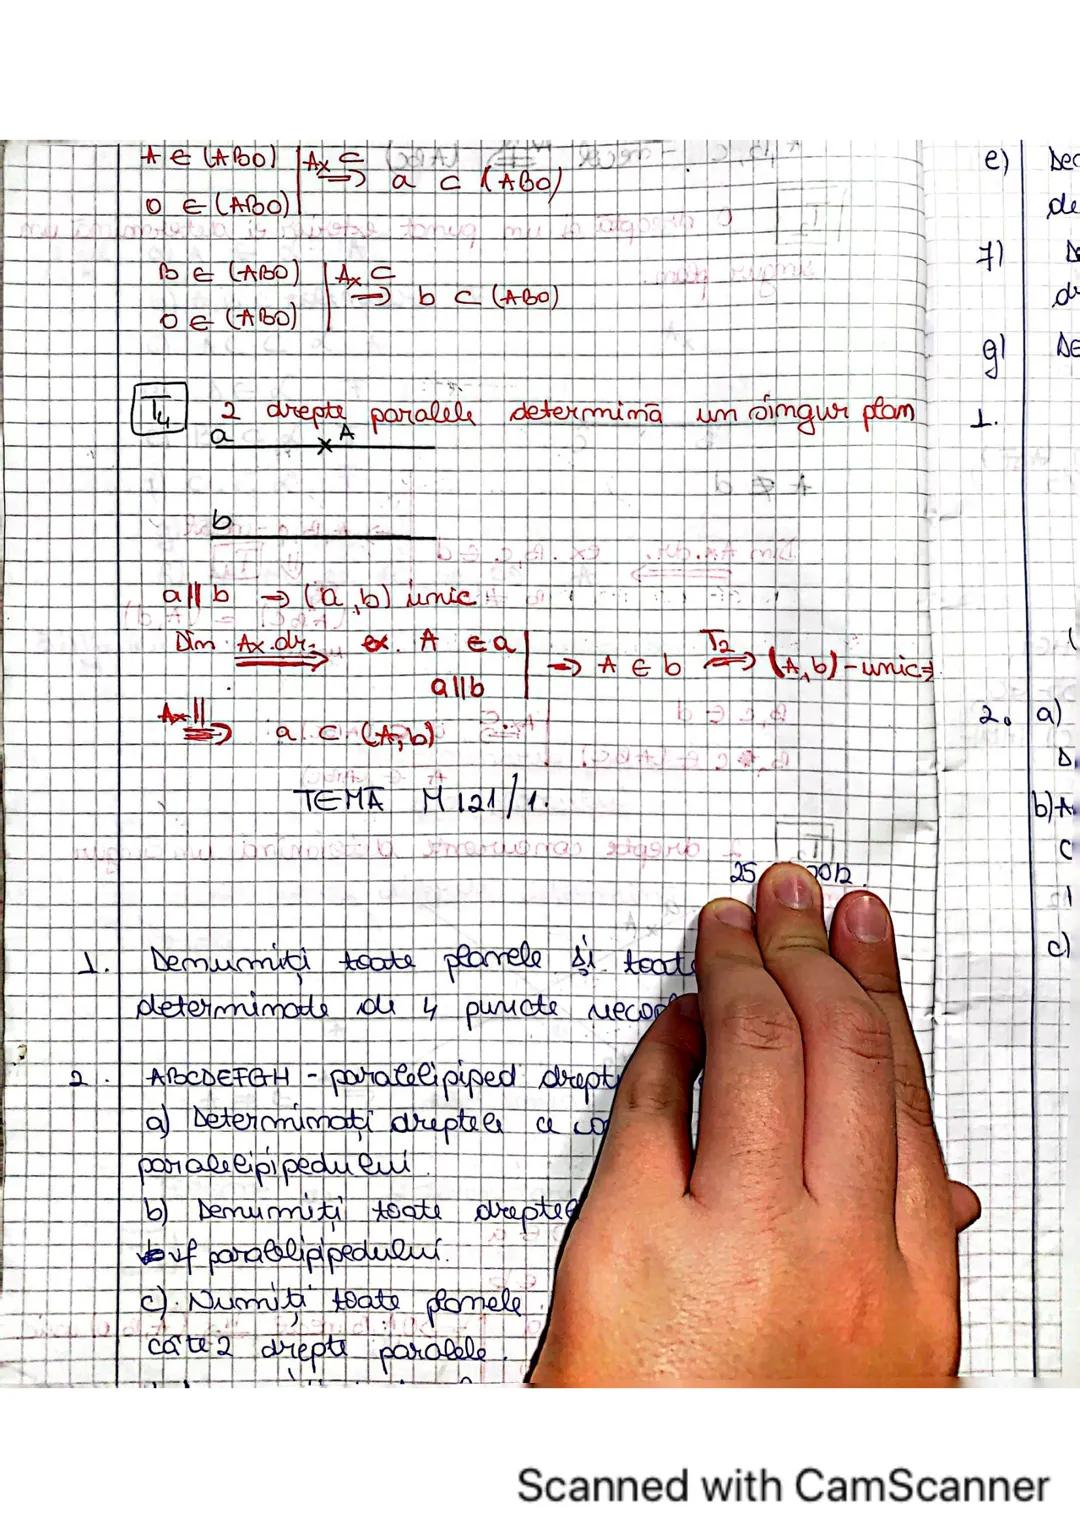 A ∈ (ABO) | Ax ⊂
⟹ a ⊂ (ABO)
O ∈ (ABO)
B ∈ (ABO) | Ax ⊂
⟹ b ⊂ (ABO)
O ∈ (ABO)
T4 2 drepte paralele determină un singur plan
a A
b
a || b → (a, b) unic
Dim Ax.dr. ⟹ ex. A ∈ a | → A ∈ b T2 ⟹ (A, b) - unic ⇒
a || b
Ax || ⟹ a ⊂ (A, b)
TEMĂ M 121/1.
25 2012.
1. Denumiți toate planele și toate
determinate de 4 puncte
2. ABCDEFGH - paralelipiped drept
a) Determinați dreptele ce
paralelipipedului.
b) Denumiți toate dreptele
vf paralelipipedului.
c). Numiți toate planele
câte 2 drepte paralele.
e)
de
f)
dr
g)
1.
2. a)
b) A
c
c)
Scanned with CamScanner